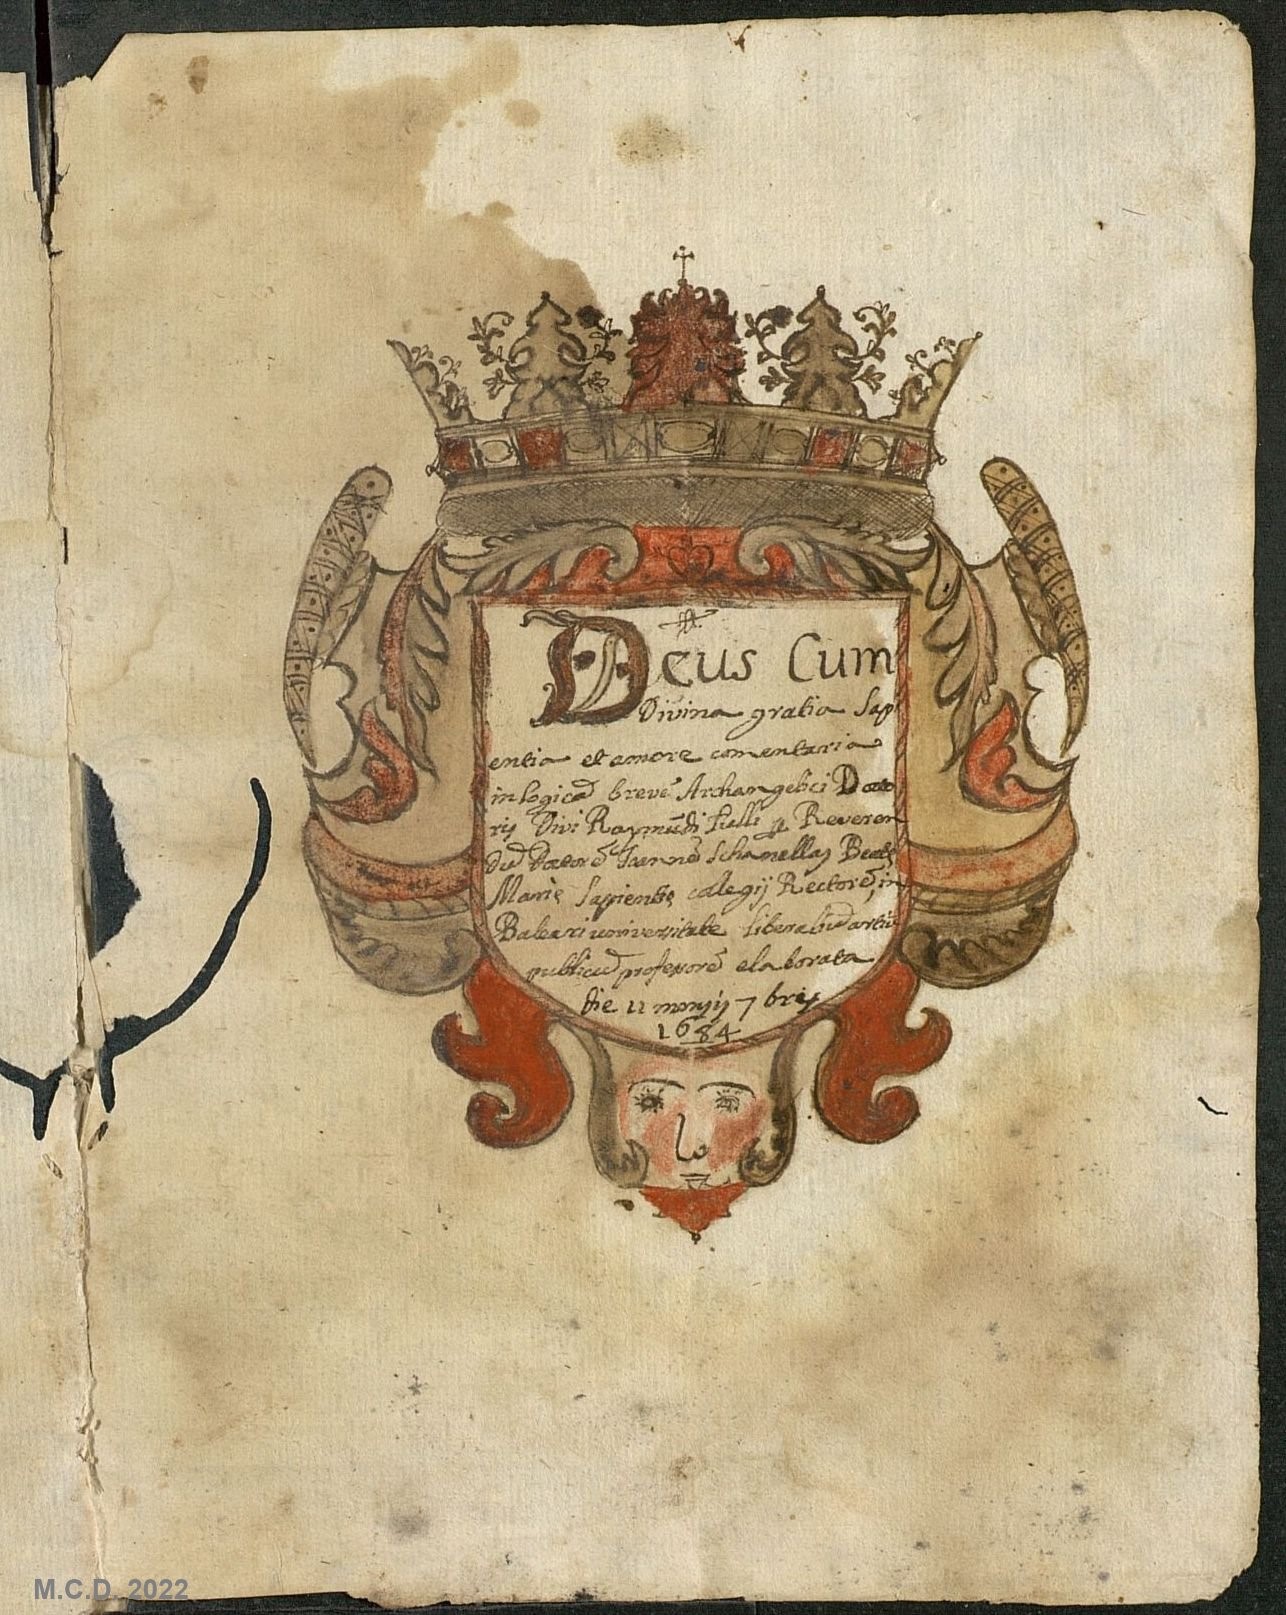 Deus Cum
Divina gratia Sapi
entia et amore comentaria
in logicã breve Archangelici Docto
ris Divi Raymũdi Lulli p Reveren
dũ Doctorẽ Joannẽ Beatę
Marię Sapientię collegij Rectorẽ, in
Baleari universitate liberaliũ artiũ
publicũ professorẽ elaborata
die 11 mensis 7 bris
1684
M.C.D. 2022